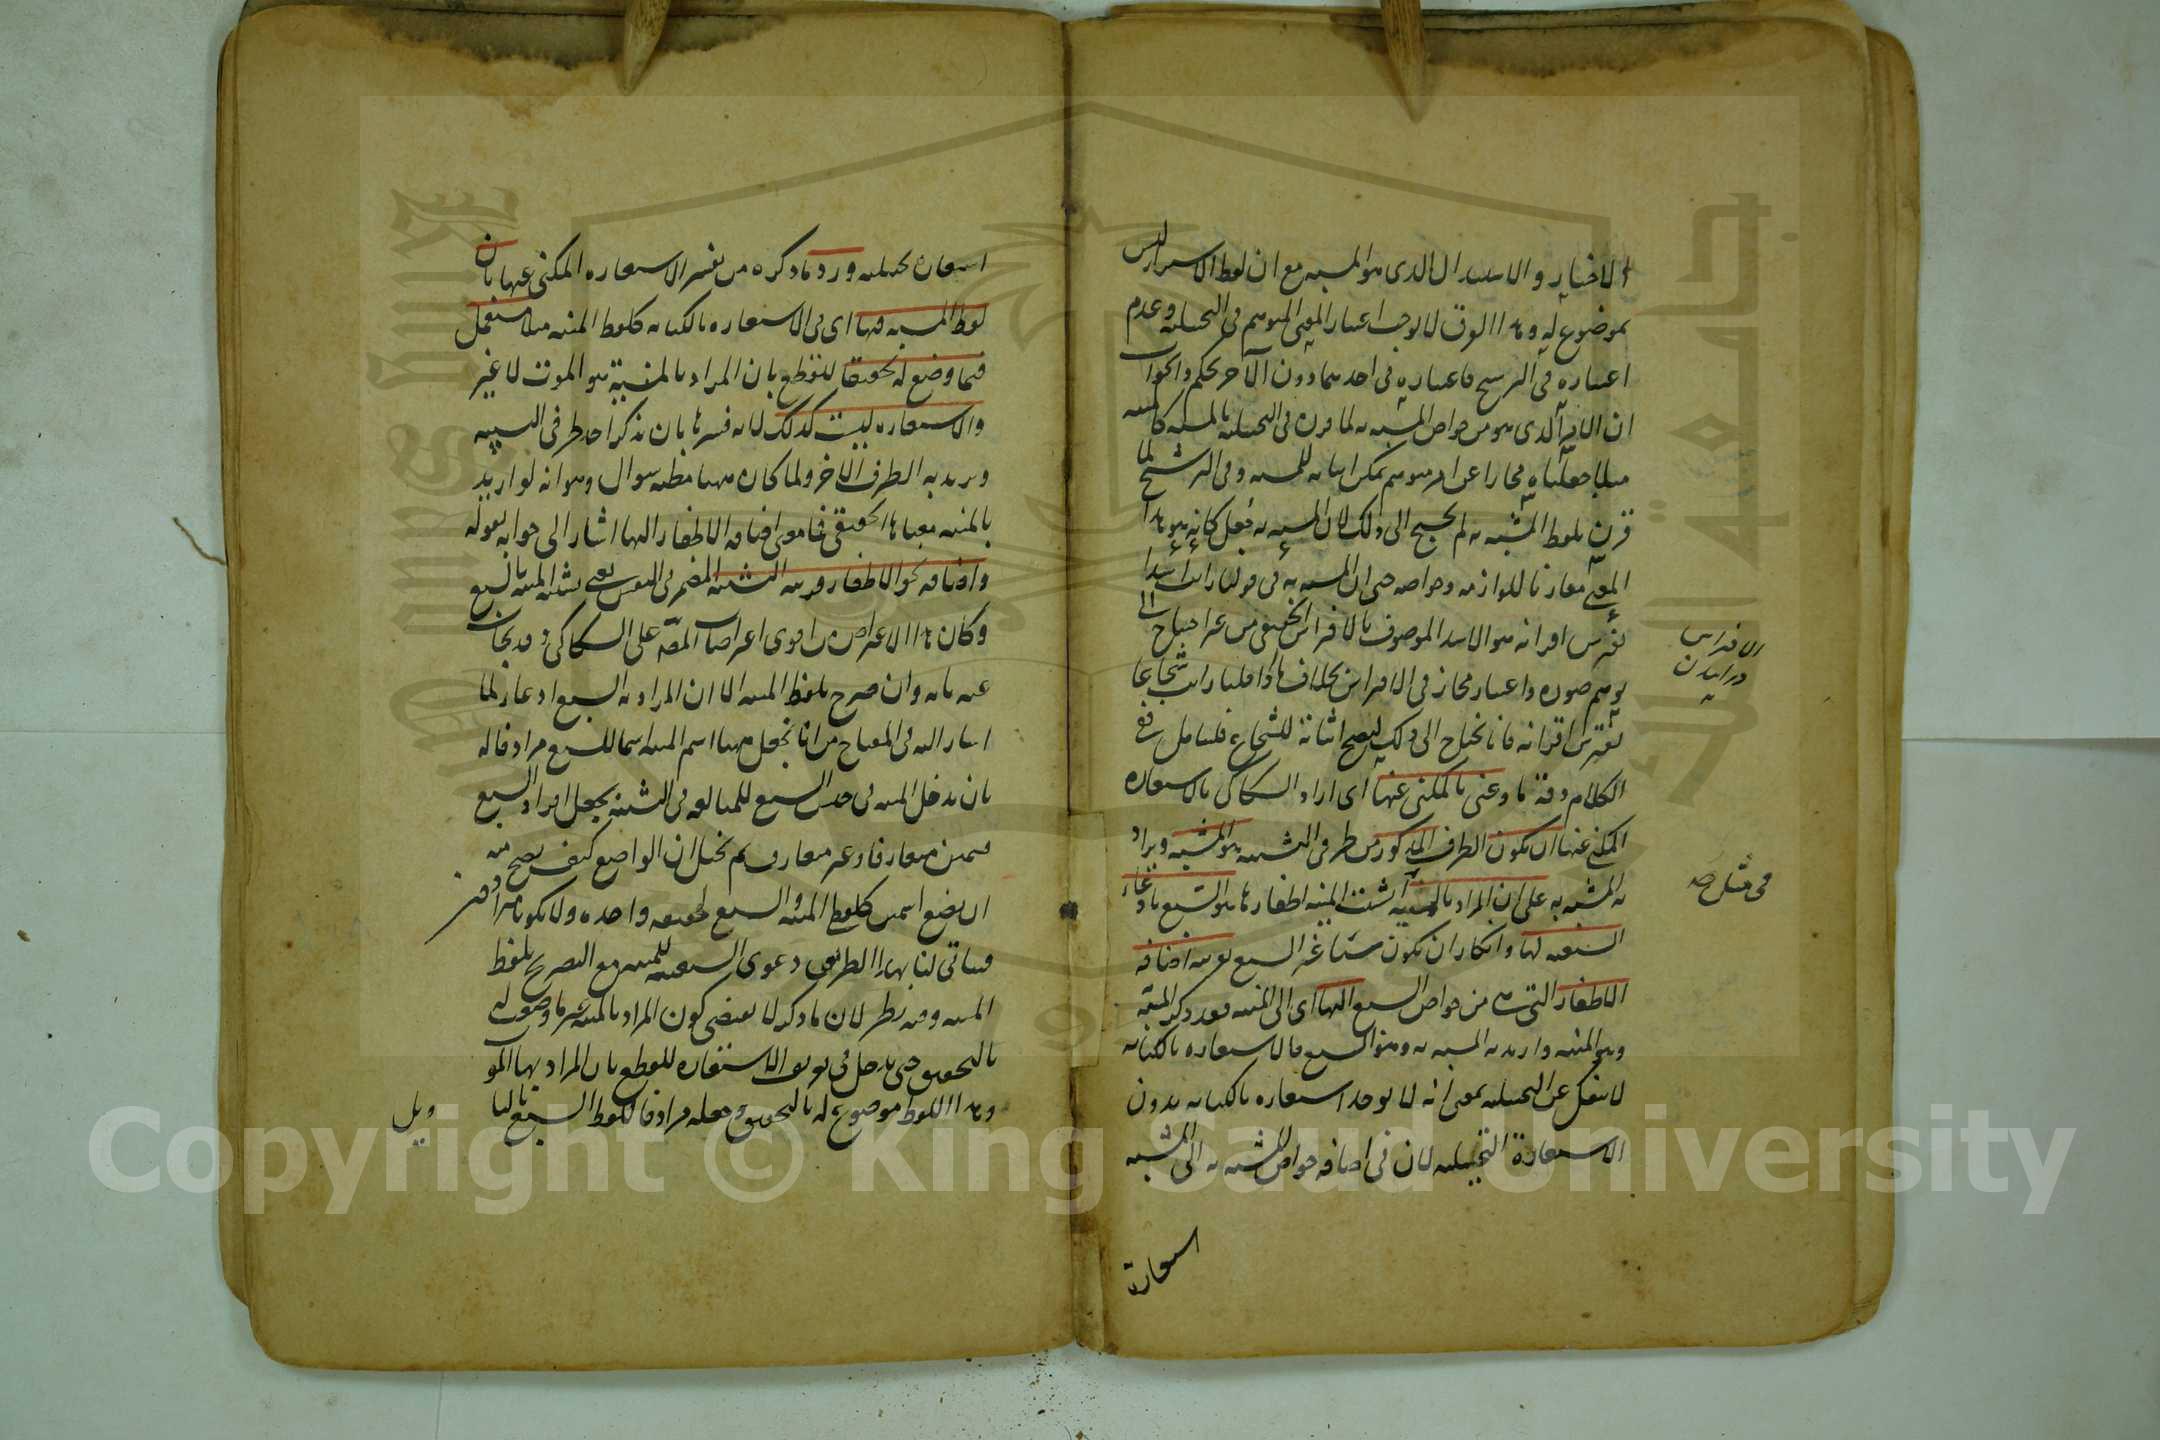 الاختيار والاستبدال الذي هو المشبه مع ان لفظ الاسد ليس
بموضوع له وهذا الفرق لا يوجب اعتبار المعنى المتوهم في التخييلية وعدم
اعتباره في الترشيح فاعتباره في احدهما دون الآخر تحكم والجواب
ان الامر الذي هو من خواص المشبه به لما قرن في التخييلية بالمشبه كالمنية
مثلا جعلناه مجازا عن امر متوهم يمكن اثباته للمشبه وفي الترشيح لما
قرن بلفظ المشبه به لم يحتج الى ذلك لان المشبه به جعل كانه هو هذا
المعنى مقارنا للوازمه وخواصه حتى ان المشبه به في قولنا رايت اسدا
يفترس اقرانه هو الاسد الموصوف بالافتراس الحقيقي من غير احتياج الى
توهم صورة واعتبار مجاز في الافتراس بخلاف ما اذا قلنا رايت شجاعا
يفترس اقرانه فانا نحتاج الى ذلك ليصح اثباته للشجاع فليتامل ففي
الكلام دقة ما وعنى بالمكني عنها اي اراد السكاكي بالاستعارة
المكني عنها ان يكون الطرف المذكور من طرفي التشبيه هو المشبه ويراد
به المشبه به على ان المراد بالمنية في مثل انشبت المنية اظفارها هو السبع بادعاء
السبعية لها وانكار ان تكون شيئا غير السبع بقرينة اضافة
الاظفار التي هي من خواص السبع اليها اي الى المنية فقد ذكر المشبه
وهو المنية واريد به المشبه به وهو السبع فالاستعارة بالكناية
لا تنفك عن التخييلية بمعنى انه لا توجد استعارة بالكناية بدون
الاستعارة التخييلية لان في اضافة خواص المشبه به الى المشبه
استعارة
الافتراس
في مثل صح
استعارة تخييلية ورد ما ذكره من تفسير الاستعارة المكني عنها بان
لفظ المشبه فيها اي في الاستعارة بالكناية كلفظ المنية مثلا مستعمل
فيما وضع له تحقيقا للقطع بان المراد بالمنية هو الموت لا غير
والاستعارة ليست كذلك لانه فسرها بان تذكر احد طرفي التشبيه
وتريد به الطرف الاخر ولما كان ههنا مظنة سوال وهو انه لو اريد
بالمنية معناها الحقيقي فما معنى اضافة الاظفار اليها اشار الى جوابه بقوله
واضافة نحو الاظفار قرينة التشبيه المضمر في النفس يعني تشبيه المنية بالسبع
وكان هذا الاعتراض من اقوى اعتراضات المصنف على السكاكي وقد يجاب
عنه بانه وان صرح بلفظ المنية الا ان المراد به السبع ادعاء لما
اشار اليه في المفتاح من انا نجعل ههنا اسم المنية اسما للسبع مرادفا له
بان ندخل المنية في جنس السبع للمبالغة في التشبيه بجعل افراد السبع
قسمين متعارفا وغير متعارف ثم نخيل ان الواضع كيف يصح منه
ان يضع اسمين كلفظي المنية والسبع لحقيقة واحدة ولا يكونا مترادفين
فيتاتى لنا بهذا الطريق دعوى السبعية للمنية مع التصريح بلفظ
المنية وفيه نظر لان ما ذكره لا يقتضي كون المراد بالمنية غير ما وضعت له
بالتحقيق حتى يدخل في تعريف الاستعارة للقطع بان المراد بها الموت
وهذا اللفظ موضوع له بالتحقيق وجعله مرادفا للفظ السبع بالتا
ويل
Copyright © King Saud University